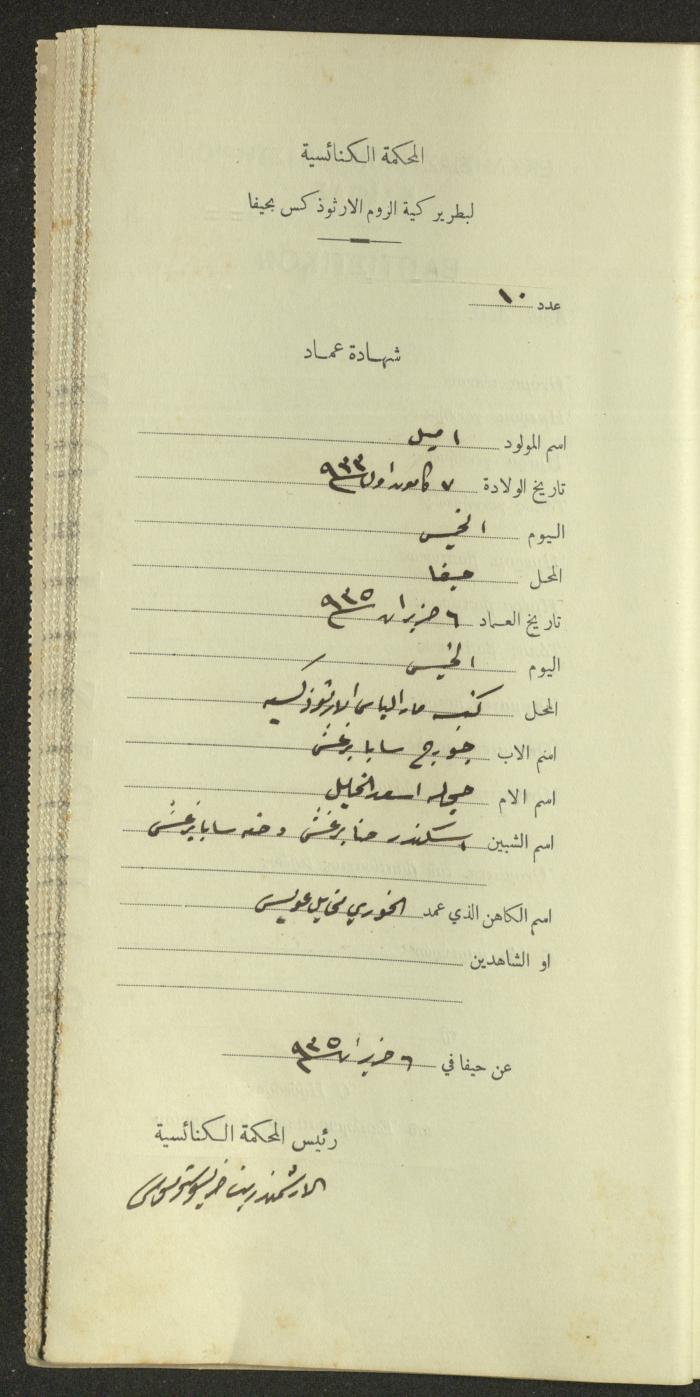 المحكمة الكنائسية
لبطريركية الروم الارثوذكس بحيفا
عدد ١٠
شهادة عماد
اسم المولود اميل
تاريخ الولادة ٧ كانون اول ٩٣٣
اليوم الخميس
المحل حيفا
تاريخ العماد ٦ حزيران ٩٣٥
اليوم الخميس
المحل كنيسة مار الياس الارثوذكسيه
اسم الاب جورج سابا برغش
اسم الام اسعد الخليل
اسم الشبين اسكندر حنا برغش وحنه سابا برغش
اسم الكاهن الذي عمد الخوري مخايل عويس
او الشاهدين
عن حيفا في ٦ حزيران ٩٣٥
رئيس المحكمة الكنائسية
الارشمندريت